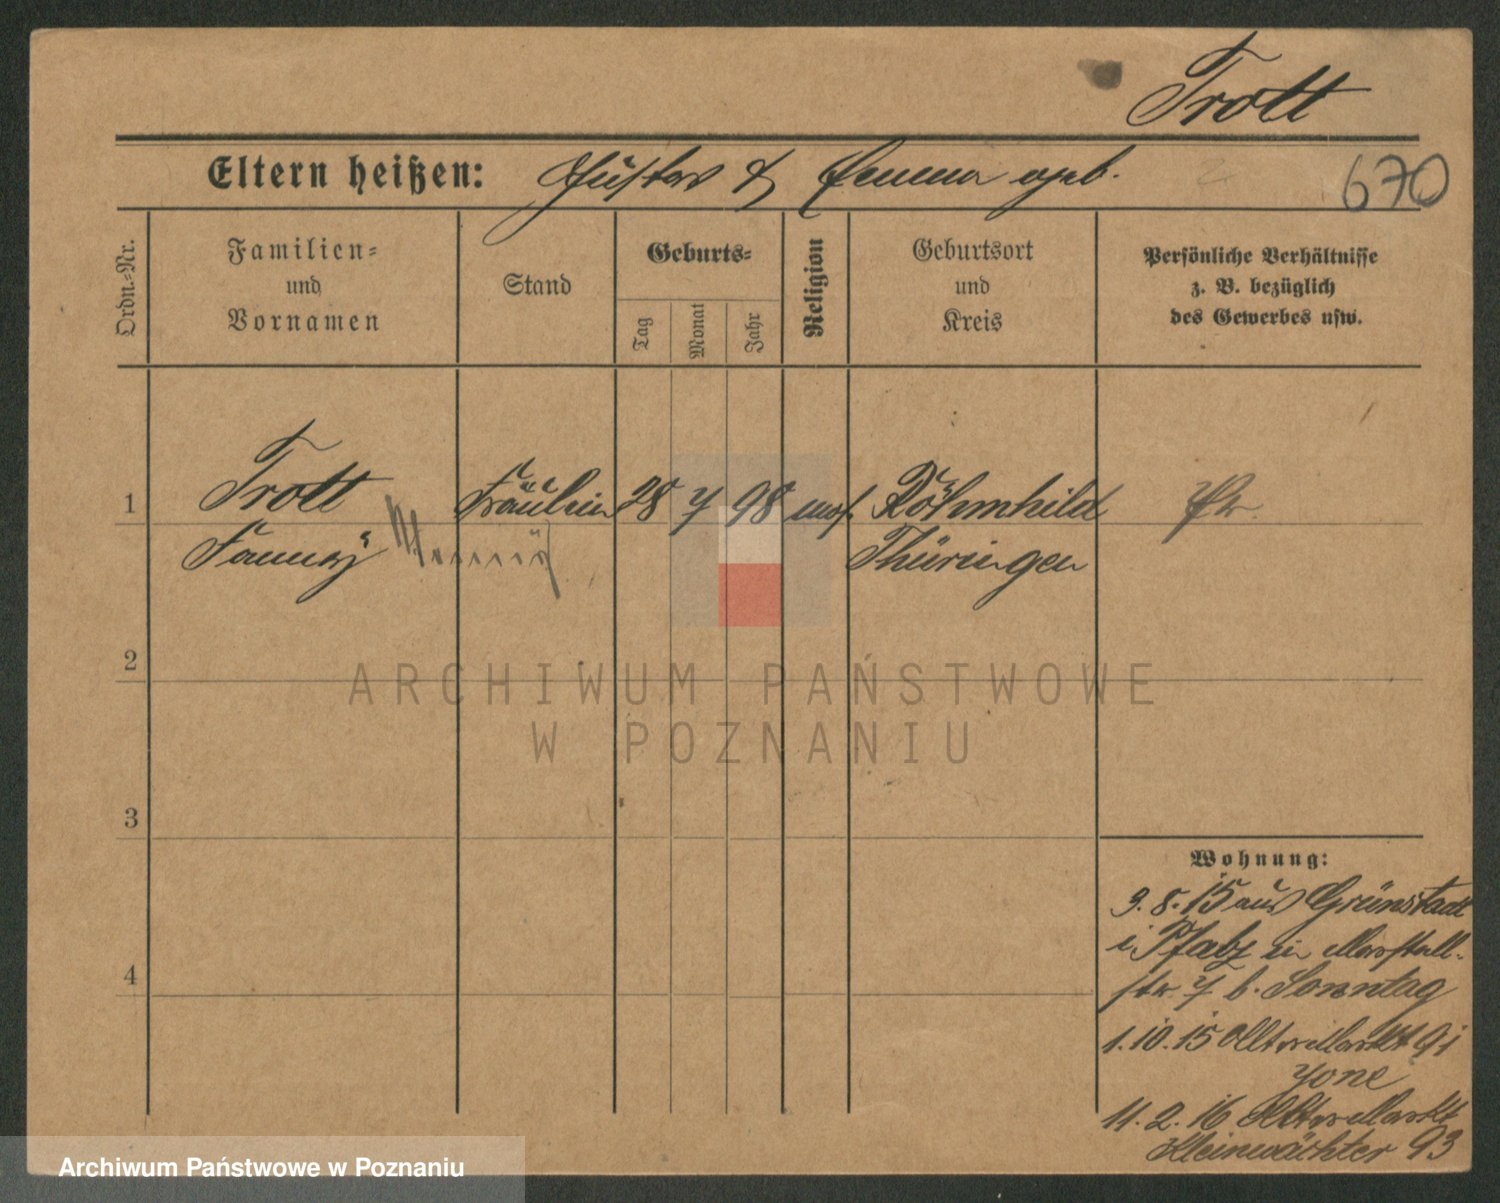 Trott
Eltern heißen: Gustav & Emma geb.
670
Ordn.-Nr.
Familien-
und
Vornamen
Stand
Geburts-
Tag
Monat
Jahr
Religion
Geburtsort
und
Kreis
Persönliche Verhältnisse
z. B. bezüglich
des Gewerbes usw.
1
Trott
Fanny
Fräulein
28 7 98 mos.
Röhmhild
Thüringen
Pr.
2
3
4
Wohnung:
9. 8. 15 aus Grünstadt
i Pfalz in Marstall-
str. 7 b. Sonntag
1. 10. 15 Alter Markt 91
11. 2. 16 Alter Markt
Kleinwächter 93
ARCHIWUM PAŃSTWOWE
W POZNANIU
Archiwum Państwowe w Poznaniu